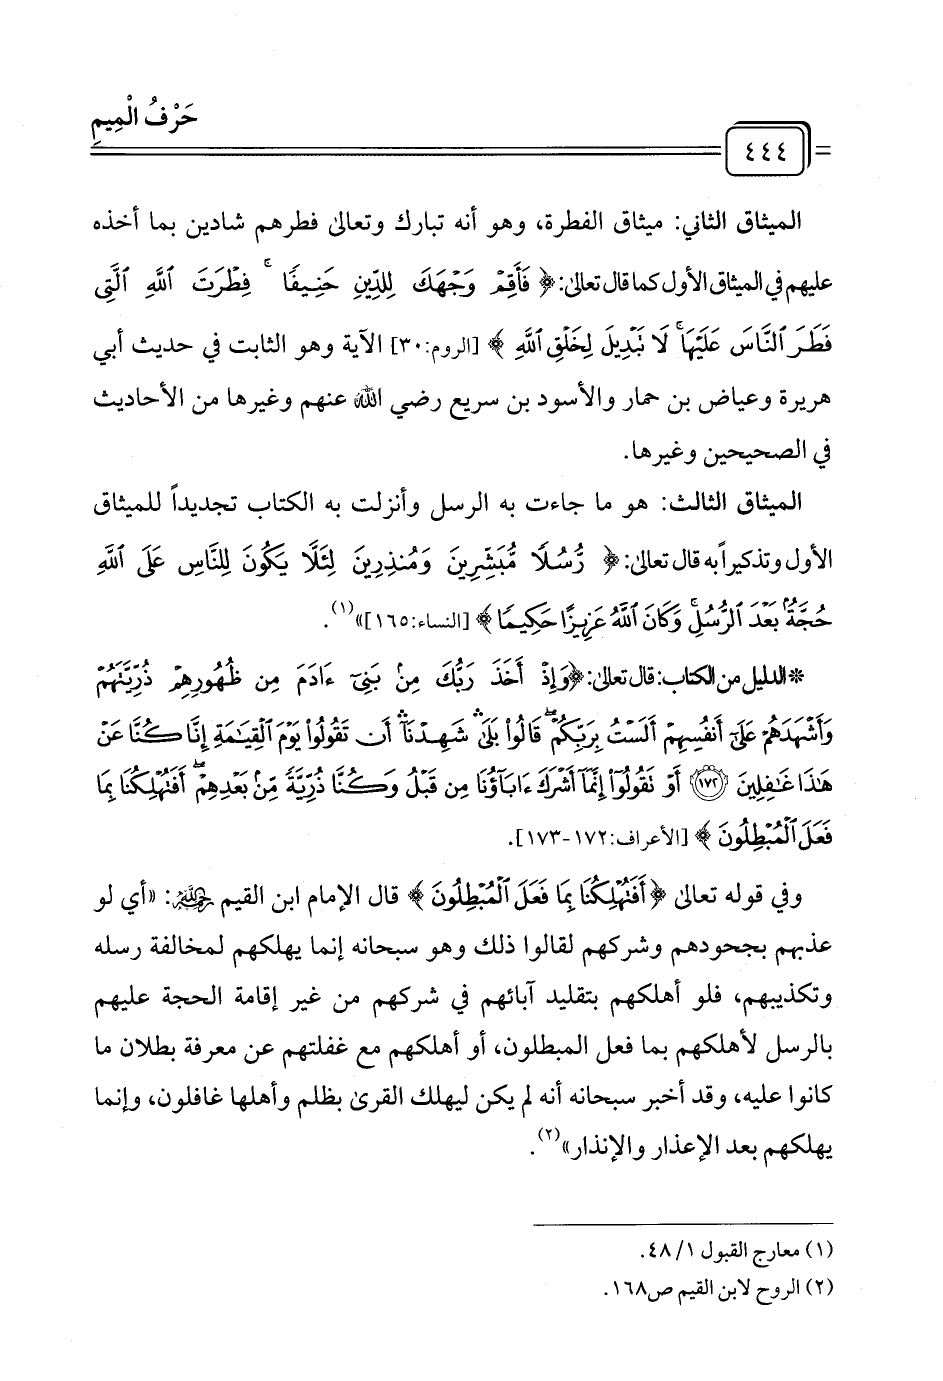 حَرْفُ الْمِيمِ
٤٤٤
الميثاق الثاني: ميثاق الفطرة، وهو أنه تبارك وتعالى فطرهم شادين بما أخذه
عليهم في الميثاق الأول كما قال تعالى: ﴿ فَأَقِمْ وَجْهَكَ لِلدِّينِ حَنِيفًا ۚ فِطْرَتَ ٱللَّهِ ٱلَّتِي
فَطَرَ ٱلنَّاسَ عَلَيْهَا ۚ لَا تَبْدِيلَ لِخَلْقِ ٱللَّهِ ﴾ [الروم:٣٠] الآية وهو الثابت في حديث أبي
هريرة وعياض بن حمار والأسود بن سريع رضي الله عنهم وغيرها من الأحاديث
في الصحيحين وغيرها.
الميثاق الثالث: هو ما جاءت به الرسل وأنزلت به الكتاب تجديداً للميثاق
الأول وتذكيراً به قال تعالى: ﴿ رُّسُلًا مُّبَشِّرِينَ وَمُنذِرِينَ لِئَلَّا يَكُونَ لِلنَّاسِ عَلَى ٱللَّهِ
حُجَّةٌۢ بَعْدَ ٱلرُّسُلِ ۚ وَكَانَ ٱللَّهُ عَزِيزًا حَكِيمًا ﴾ [النساء:١٦٥]»(١).
*الدليل من الكتاب: قال تعالى: ﴿وَإِذْ أَخَذَ رَبُّكَ مِنۢ بَنِيٓ ءَادَمَ مِن ظُهُورِهِمْ ذُرِّيَّتَهُمْ
وَأَشْهَدَهُمْ عَلَىٰٓ أَنفُسِهِمْ أَلَسْتُ بِرَبِّكُمْ ۖ قَالُوا۟ بَلَىٰ ۛ شَهِدْنَآ ۛ أَن تَقُولُوا۟ يَوْمَ ٱلْقِيَٰمَةِ إِنَّا كُنَّا عَنْ
هَٰذَا غَٰفِلِينَ ﴿١٧٢﴾ أَوْ تَقُولُوٓا۟ إِنَّمَآ أَشْرَكَ ءَابَآؤُنَا مِن قَبْلُ وَكُنَّا ذُرِّيَّةً مِّنۢ بَعْدِهِمْ ۖ أَفَتُهْلِكُنَا بِمَا
فَعَلَ ٱلْمُبْطِلُونَ ﴾ [الأعراف:١٧٢-١٧٣].
وفي قوله تعالى ﴿ أَفَتُهْلِكُنَا بِمَا فَعَلَ ٱلْمُبْطِلُونَ ﴾ قال الإمام ابن القيم رحمه الله: «أي لو
عذبهم بجحودهم وشركهم لقالوا ذلك وهو سبحانه إنما يهلكهم لمخالفة رسله
وتكذيبهم، فلو أهلكهم بتقليد آبائهم في شركهم من غير إقامة الحجة عليهم
بالرسل لأهلكهم بما فعل المبطلون، أو أهلكهم مع غفلتهم عن معرفة بطلان ما
كانوا عليه، وقد أخبر سبحانه أنه لم يكن ليهلك القرى بظلم وأهلها غافلون، وإنما
يهلكهم بعد الإعذار والإنذار»(٢).
(١) معارج القبول ١/ ٤٨.
(٢) الروح لابن القيم ص١٦٨.